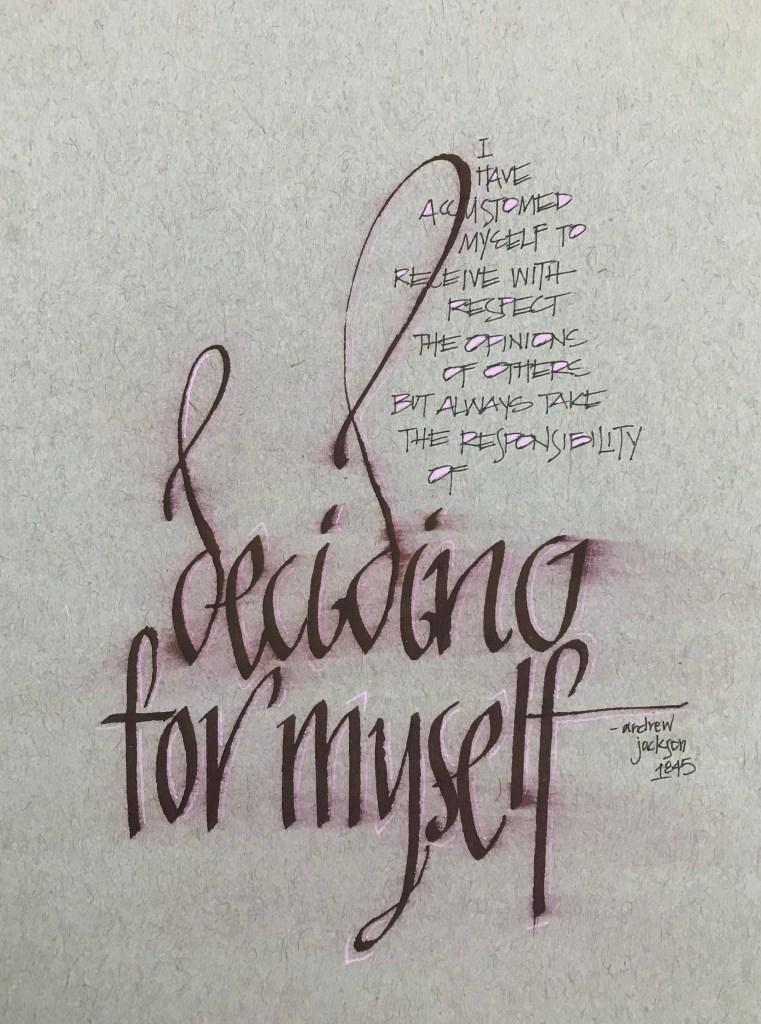 I
HAVE
ACCUSTOMED
MYSELF TO
RECEIVE WITH
RESPECT
THE OPINIONS
OF OTHERS
BUT ALWAYS TAKE
THE RESPONSIBILITY
OF
deciding
for myself
- andrew
jackson
1845